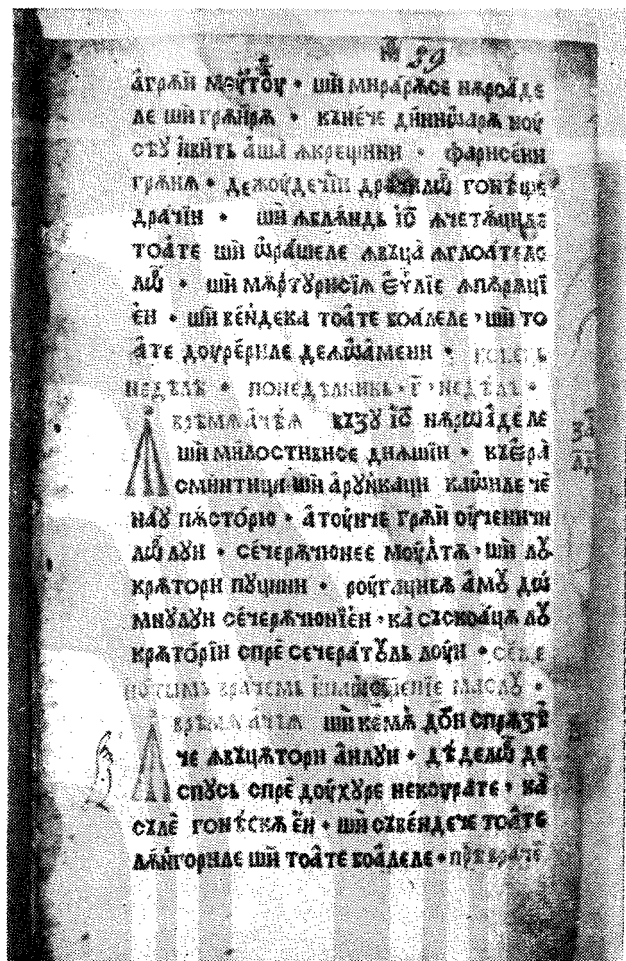 л҃и 39
а̂грѫй моу́тоу • шӥ мира́рѫсе нѫроа̂де
ле шӥ грѫӥрѫ • кѫне́че динпꙋа́рѫ ноу
сѣꙋ и̂ви́ть а̂ша̀ ѫкрещини • фарисе́ни
грѫіа • дежоу́дечїи дра́чилѡ̂ гоне́ще
дра́чїи • шӥ ѫбла́ндь і҆с҃ ѫчета́циле
тоа́те шӥ ѡ̂ра́шеле ѫвъца̀ ѫглоа́теле
лѡ̂ • шӥ мѫртꙋриси́ѧ е̂ѵ҃ліе ѫпърѫцї
є́и • шӥ ве́ндека тоа́те боа́леле • шӥ то
а̂те доуре́риле делѡ̂а́мени •
недѣлѣ • понедѣлникь • г҃ • недѣлѣ •
Ѫ врѣмѧ а̂че́ѧ възꙋ і҆с҃ нѫрѡа́деле
шӥ милости́висе динѫшїи • къера̀
сминти́ци шӥ а̂рꙋнка́ци ка ѡ̂иле че
наꙋ пѫсто́рю • а̂тоу́нче грѫӥ оу́ченичи
лѡ̂ лꙋи • се́черѫчюнеє моу́лтѫ • шӥ лꙋ
крѫто́ри пꙋци́ни • роуга́цивѫ а̂мꙋ до́
мнꙋлꙋи се́черѫчюнїє́и • ка̀ съскоа́цѫ лꙋ
крѫто́рїи спрѐ сечера́тꙋль лоу́и •
врачемь и
Ѫ врѣмѧ а̂че́ѧ шӥ ке́мѫ до́и спрѫзѣ́
че ѫвъцѫто́ри а̂илꙋи • дѣ́делѡ̂ де
спꙋсь спрѐ доу́хꙋре некоура́те • ка̀
сълѐ гоне́скѫ є́и • шӥ съве́ндече тоа́те
лѫ́нгориле шӥ тоа́те боа́леле •